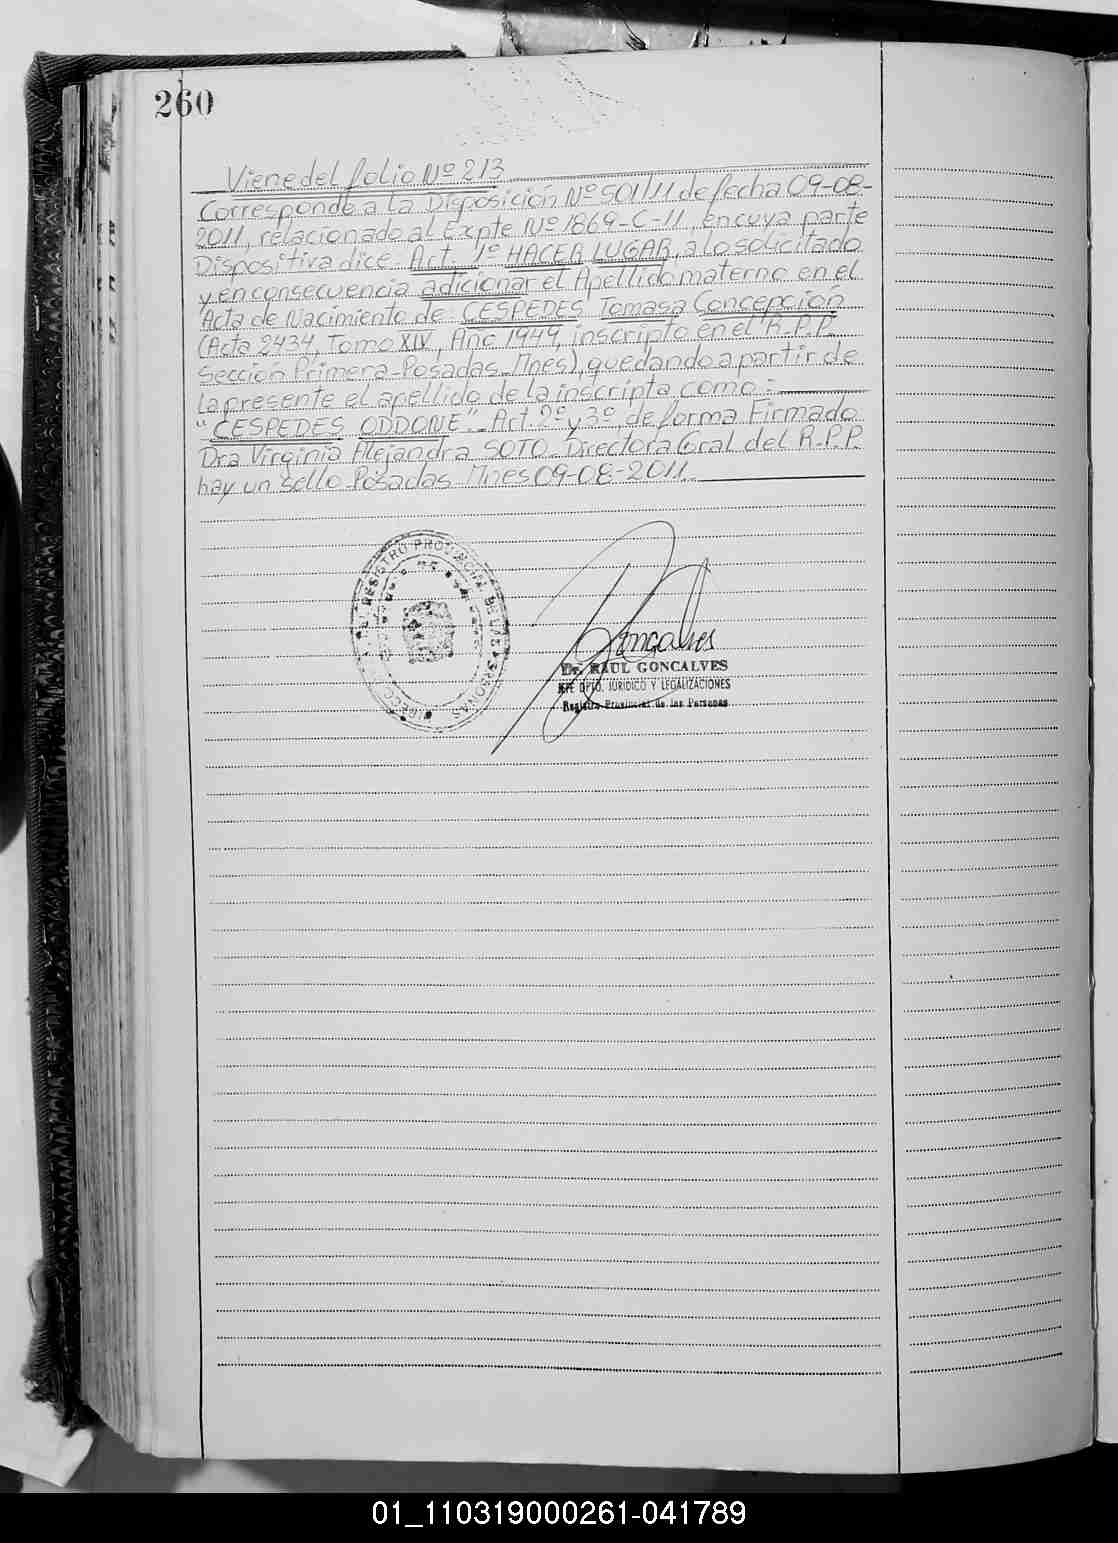 260
Viene del folio Nº 213
Corresponde a la Disposición Nº 501/11 de fecha 09-08-
2011, relacionado al Expte Nº 1869-C-11, en cuya parte
Dispositiva dice: Art. 1º HACER LUGAR, a lo solicitado
y en consecuencia adicionar el Apellido materno en el
Acta de Nacimiento de: CESPEDES Tomasa Concepción
(Acta 2434, Tomo XIV, Año 1949, inscripto en el R.P.P.
Sección Primera-Posadas-Mnes), quedando a partir de
la presente el apellido de la inscripta como:
"CESPEDES ODDONE". Art. 2º y 3º de forma Firmado
Dra Virginia Alejandra SOTO. Directora Gral del R.P.P.
hay un sello Posadas Mnes 09-08-2011.
REGISTRO PROVINCIAL DE LAS PERSONAS
Goncalves
Dr. RAUL GONCALVES
JEFE DPTO. JURIDICO Y LEGALIZACIONES
Registro Provincial de las Personas
01_110319000261-041789